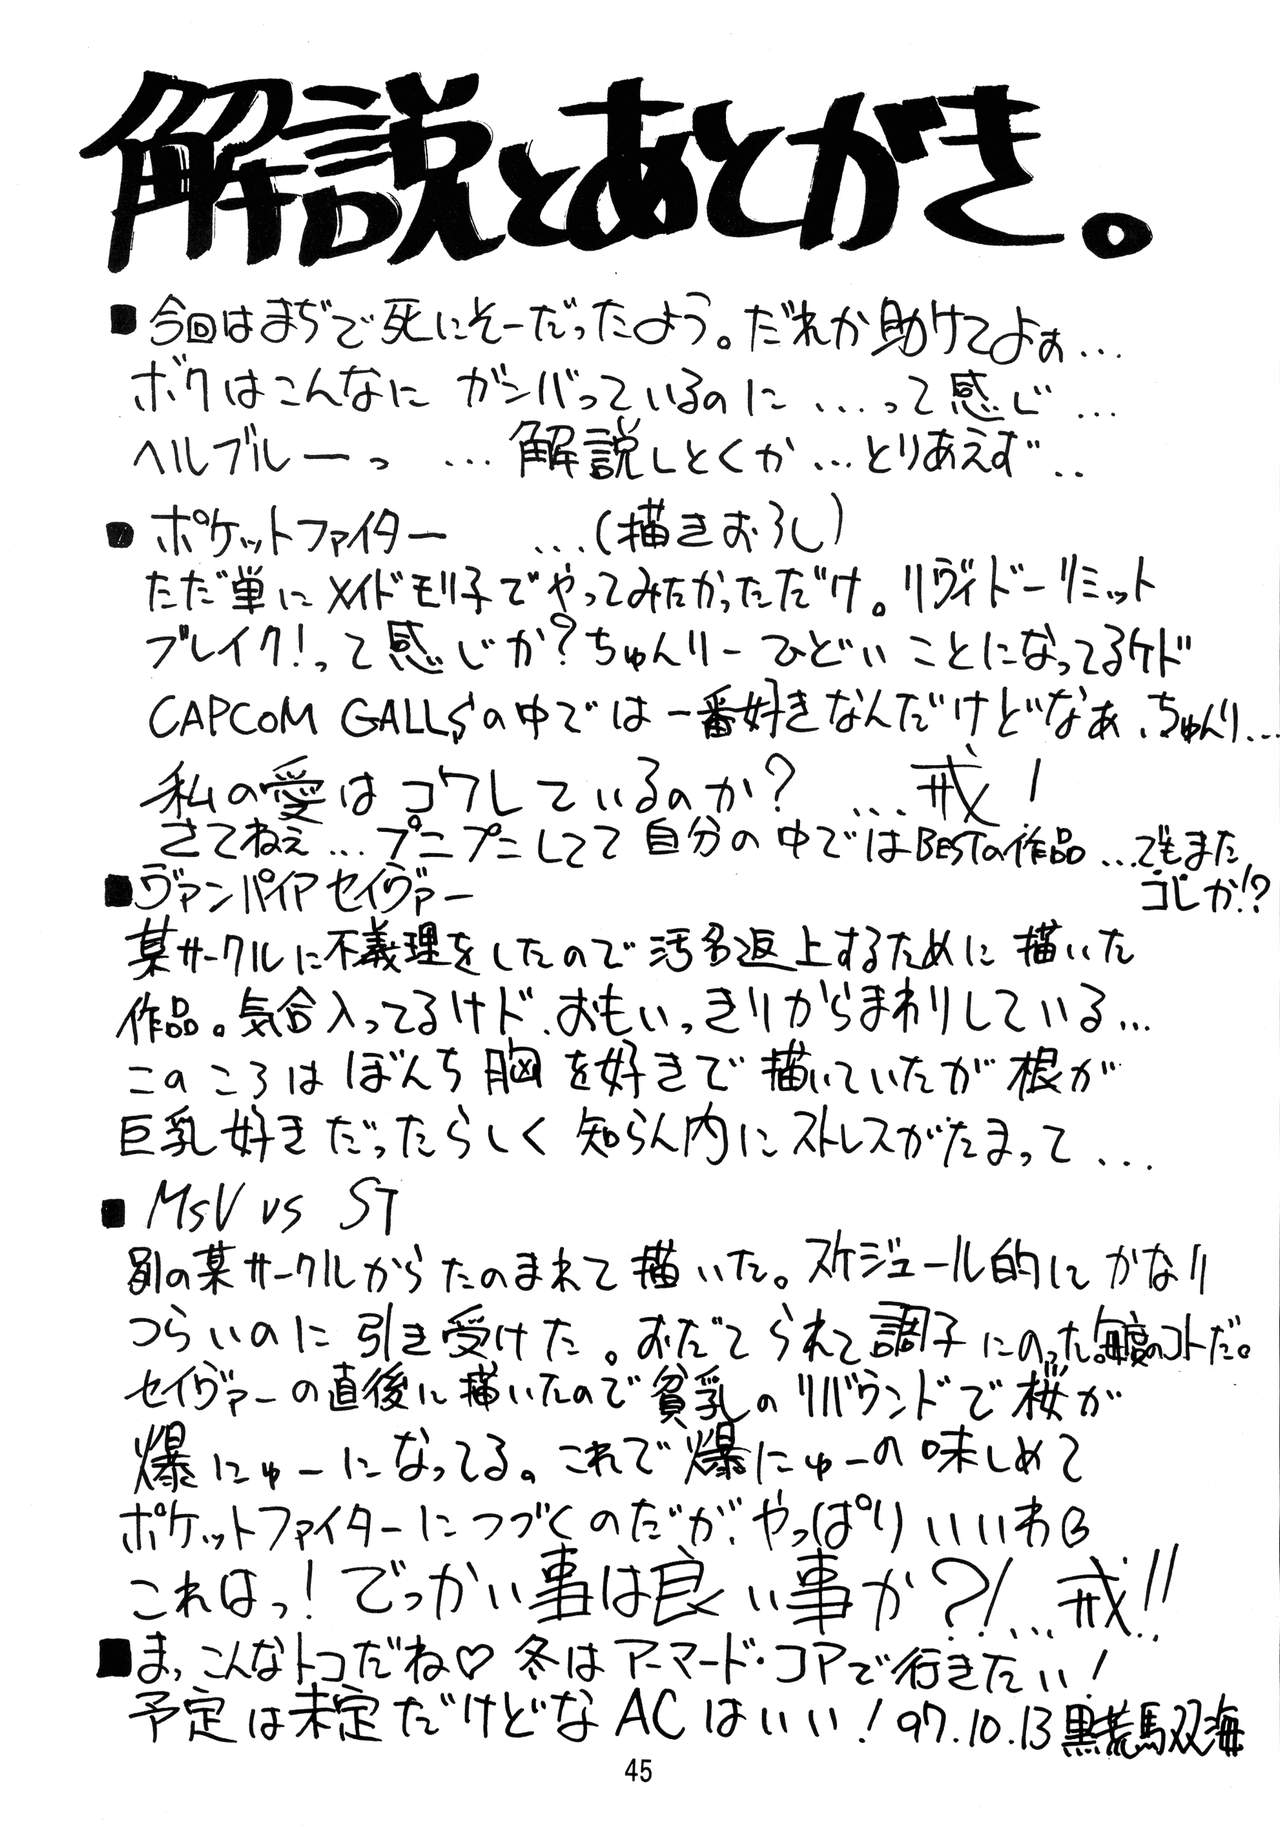 解説とあとがき。
■今回はまぢで死にそーだったよう。だれか助けてよぉ...
ボクはこんなに ガンバっているのに ...って感じ...
ヘルブルーっ ...解説しとくか...とりあえず...
■ポケットファイター ...(描きおろし)
ただ単にメイドモリ子でやってみたかっただけ。リヴィドーリミット
ブレイク!って感じか?ちゅんりー ひどいことになってるケド
CAPCOM GALLSの中では一番好きなんだけどなぁ、ちゅんり...
私の愛はコワしているのか? ...戒!
さてねぇ...プニプニしてて自分の中ではBESTの作品...でもまた
コレか!?
■ヴァンパイアセイヴァー
某サークルに不義理をしたので汚名返上するために描いた
作品。気合入ってるけド、おもいっきりからまわりしている...
このころはぼんち胸を好きで描いていたが根が
巨乳好きだったらしく知らん内にストレスがたまって...
■MSV VS ST
別の某サークルからたのまれて描いた。スケジュール的にかなり
つらいのに引き受けた。おだてられて調子にのった。毎度のコトだ。
セイヴァーの直後に描いたので貧乳のリバウンドで桜が
爆にゅーになってる。これで爆にゅーの味しめて
ポケットファイターにつづくのだが、やっぱりいいわ
これはっ!でっかい事は良い事か?!...戒!!
■ま、こんなトコだね♡冬はアーマード・コアで行きたい!
予定は未定だけどなACはいい!97.10.13黒荒馬双海
45